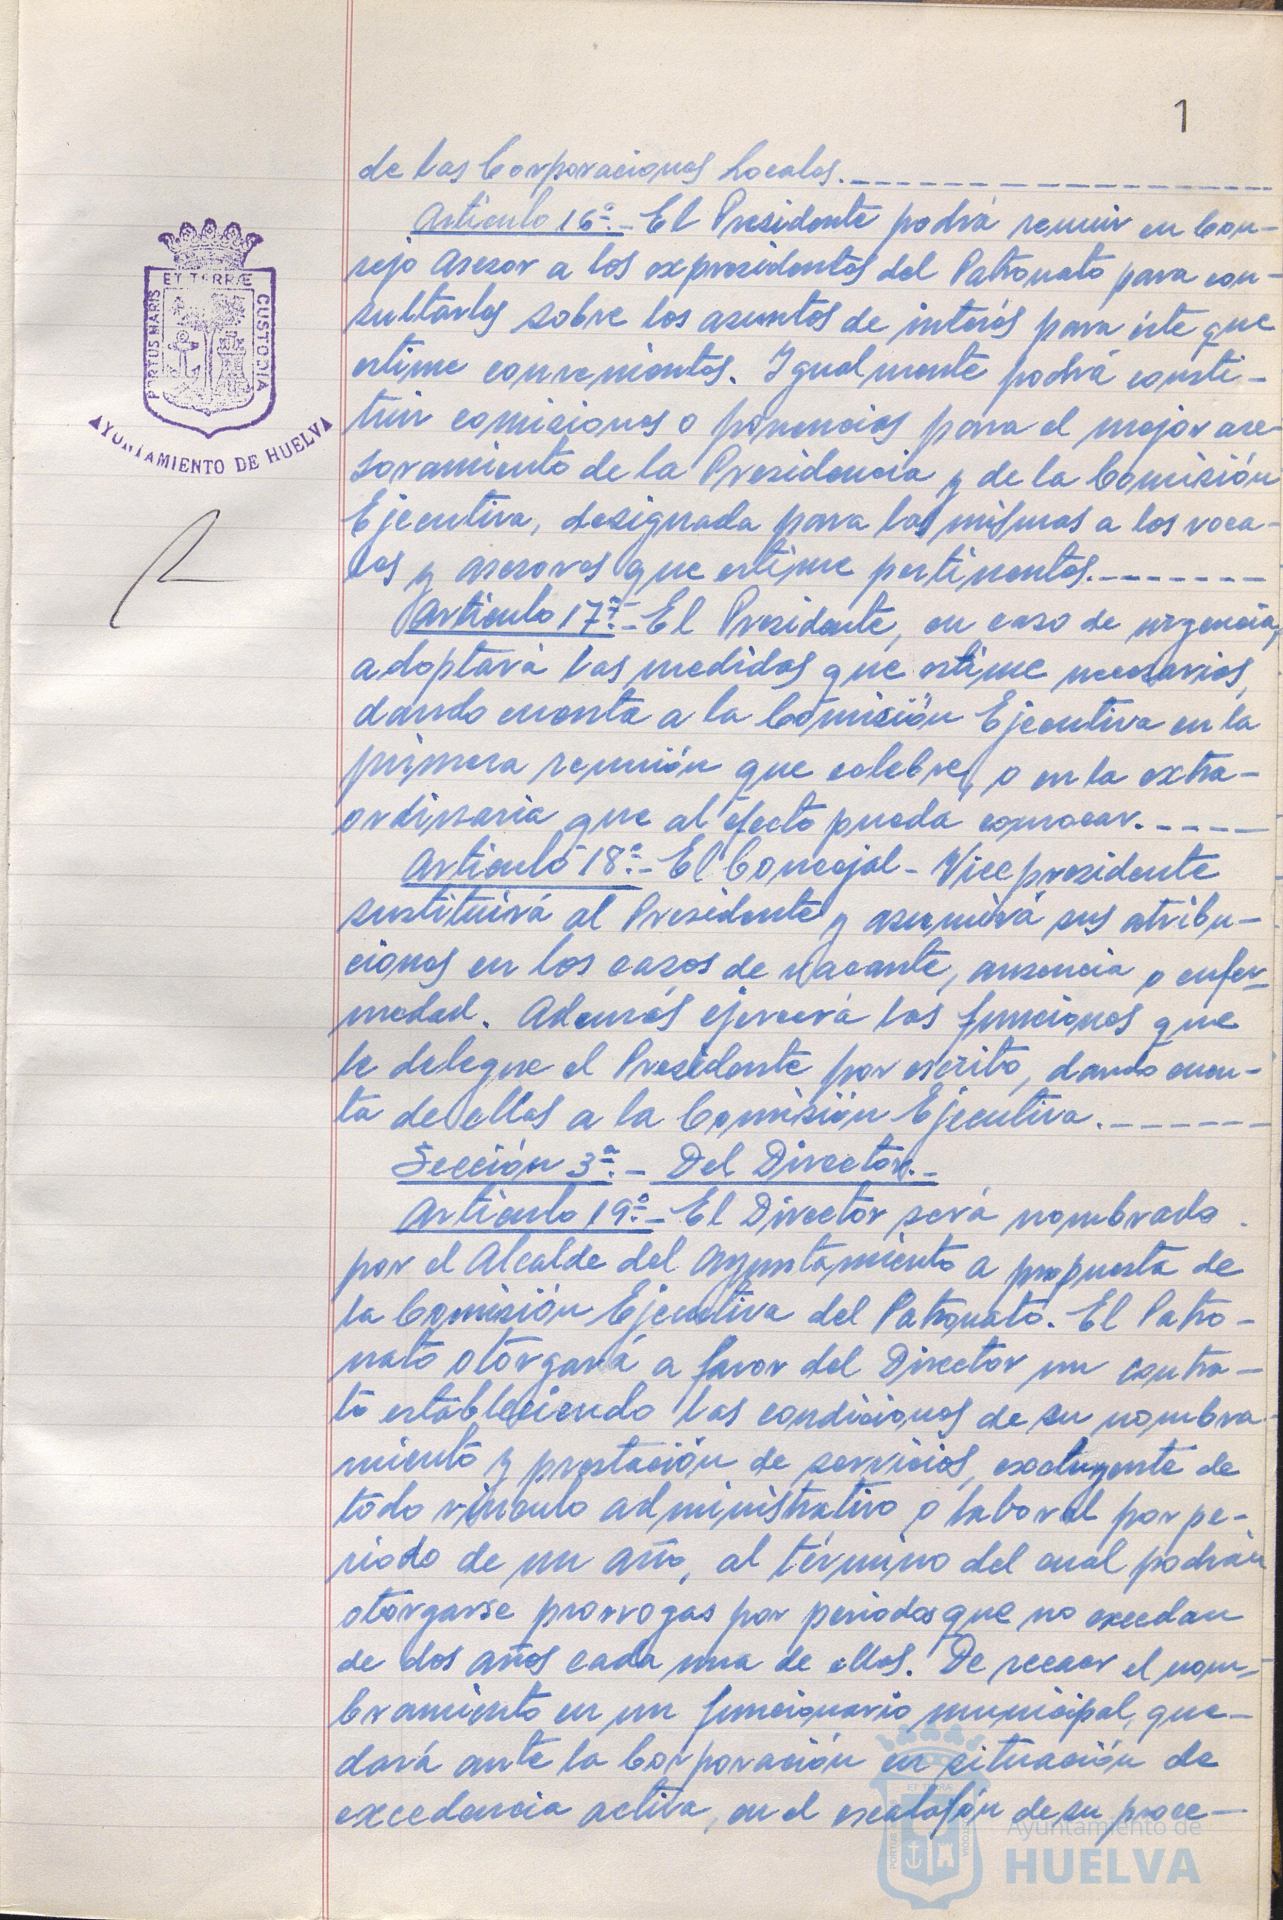 1
de las Corporaciones Locales.
Artículo 16º.- El Presidente podrá reunir en Con-
sejo Asesor a los expresidentes del Patronato para con-
sultarles sobre los asuntos de interés para éste que
estime convenientes. Igualmente podrá consti-
tuir comisiones o ponencias para el mejor ase-
soramiento de la Presidencia y de la Comisión
Ejecutiva, designada para las mismas a los voca-
les y asesores que estime pertinentes.
Artículo 17º.- El Presidente, en caso de urgencia,
adoptará las medidas que estime necesarias,
dando cuenta a la Comisión Ejecutiva en la
primera reunión que celebre, o en la extra-
ordinaria que al efecto pueda convocar.
Artículo 18º.- El Concejal-Vicepresidente
sustituirá al Presidente y asumirá sus atribu-
ciones en los casos de vacante, ausencia o enfer-
medad. Además ejercerá las funciones que
le delegue el Presidente por escrito, dando cuen-
ta de ellas a la Comisión Ejecutiva.
Sección 3ª.- Del Director.-
Artículo 19º.- El Director será nombrado
por el Alcalde del Ayuntamiento a propuesta de
la Comisión Ejecutiva del Patronato. El Patro-
nato otorgará a favor del Director un contra-
to estableciendo las condiciones de su nombra-
miento y prestación de servicios, excluyente de
todo vínculo administrativo o laboral por pe-
riodo de un año, al término del cual podrán
otorgarse prorrogas por periodos que no excedan
de dos años cada una de ellas. De recaer el nom-
bramiento en un funcionario municipal, que-
dará ante la Corporación en situación de
excedencia activa, en el escalafón de su proce-
PORTUS MARIS
ET TERRÆ
CUSTODIA
AYUNTAMIENTO DE HUELVA
PORTUS
ET TERRÆ
CUSTODIA
Ayuntamiento de
HUELVA